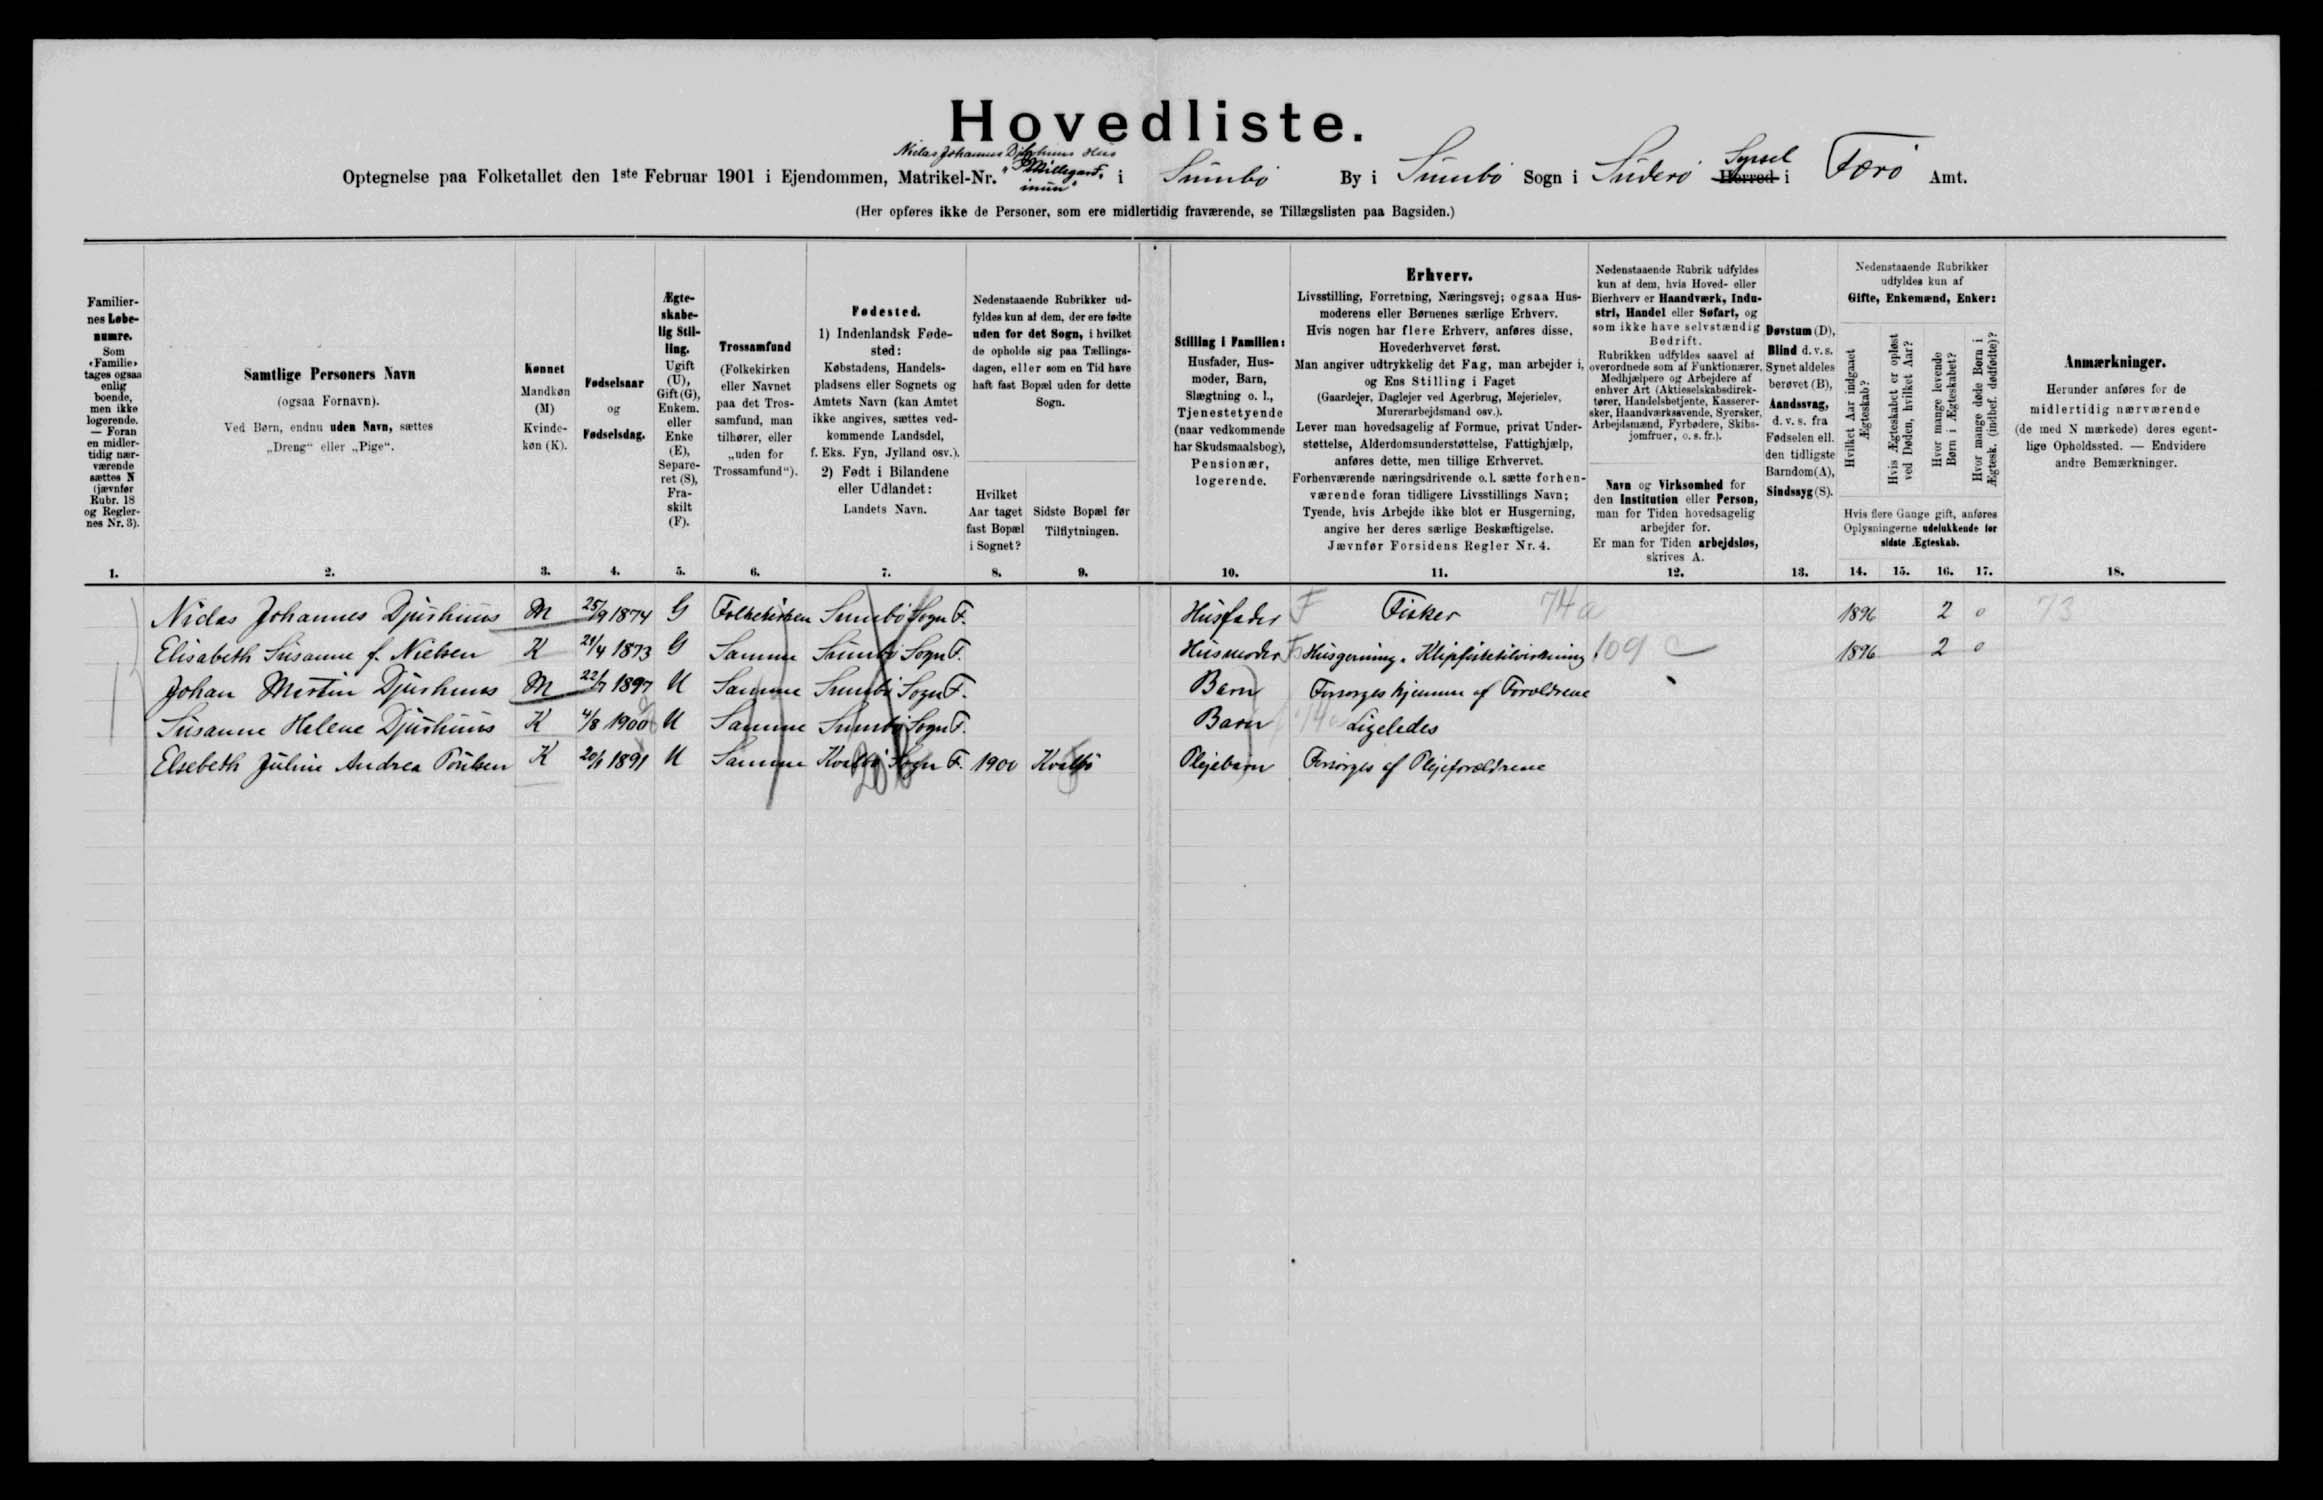 Hovedliste.
Niclas Johannes Djurhuus Hus
Optegnelse paa Folketallet den 1ste Februar 1901 i Ejendommen, Matrikel-Nr. i Sumbö By i Sumbö Sogn i Suderö Herred Syssel i Færö Amt.
(Her opføres ikke de Personer, som ere midlertidig fraværende, se Tillægslisten paa Bagsiden.)
Familiernes Løbenumre. Som «Familie» tages ogsaa enlig boende, men ikke logerende. — Foran en midlertidig nærværende sættes N (jævnfør Rubr. 18 og Reglernes Nr. 3).
Samtlige Personers Navn
(ogsaa Fornavn).
Ved Børn, endnu uden Navn, sættes
„Dreng“ eller „Pige“.
Kønnet
Mandkøn
(M)
Kvinde-
køn (K).
Fødselsaar
og
Fødselsdag.
Ægte-
skabe-
lig Stil-
ling.
Ugift
(U),
Gift (G),
Enkem.
eller
Enke
(E),
Separe-
ret (S),
Fra-
skilt
(F).
Trossamfund
(Folkekirken
eller Navnet
paa det Tros-
samfund, man
tilhører, eller
„uden for
Trossamfund“).
Fødested.
1) Indenlandsk Føde-
sted:
Købstadens, Handels-
pladsens eller Sognets og
Amtets Navn (kan Amtet
ikke angives, sættes ved-
kommende Landsdel,
f. Eks. Fyn, Jylland osv.).
2) Født i Bilandene
eller Udlandet:
Landets Navn.
Nedenstaaende Rubrikker ud-
fyldes kun af dem, der ere fødte
uden for det Sogn, i hvilket
de opholde sig paa Tællings-
dagen, eller som en Tid have
haft fast Bopæl uden for dette
Sogn.
Hvilket
Aar taget
fast Bopæl
i Sognet?
Sidste Bopæl før
Tilflytningen.
Stilling i Familien:
Husfader, Hus-
moder, Barn,
Slægtning o. l.,
Tjenestetyende
(naar vedkommende
har Skudsmaalsbog),
Pensionær,
logerende.
Erhverv.
Livsstilling, Forretning, Næringsvej; ogsaa Hus-
moderens eller Børnenes særlige Erhverv.
Hvis nogen har flere Erhverv, anføres disse,
Hovederhvervet først.
Man angiver udtrykkelig det Fag, man arbejder i,
og Ens Stilling i Faget
(Gaardejer, Daglejer ved Agerbrug, Mejerielev,
Murerarbejdsmand osv.).
Lever man hovedsagelig af Formue, privat Under-
støttelse, Alderdomsunderstøttelse, Fattighjælp,
anføres dette, men tillige Erhvervet.
Forhenværende næringsdrivende o. l. sætte forhen-
værende foran tidligere Livsstillings Navn;
Tyende, hvis Arbejde ikke blot er Husgerning,
angive her deres særlige Beskæftigelse.
Jævnfør Forsidens Regler Nr. 4.
Nedenstaaende Rubrik udfyldes
kun af dem, hvis Hoved- eller
Bierhverv er Haandværk, Indu-
stri, Handel eller Søfart, og
som ikke have selvstændig
Bedrift.
Rubrikken udfyldes saavel af
overordnede som af Funktionærer,
Medhjælpere og Arbejdere af
enhver Art (Aktieselskabsdirek-
tører, Handelsbetjente, Kasserer-
sker, Haandværkssvende, Syersker,
Arbejdsmænd, Fyrbødere, Skibs-
jomfruer, o. s. fr.).
Navn og Virksomhed for
den Institution eller Person,
man for Tiden hovedsagelig
arbejder for.
Er man for Tiden arbejdsløs,
skrives A.
Døvstum (D),
Blind d. v. s.
Synet aldeles
berøvet (B),
Aandssvag,
d. v. s. fra
Fødselen ell.
den tidligste
Barndom (A),
Sindssyg (S).
Nedenstaaende Rubrikker
udfyldes kun af
Gifte, Enkemænd, Enker:
Hvilket Aar indgaaet Ægteskab?
Hvis Ægteskabet er opløst ved Døden, hvilket Aar?
Hvor mange levende Børn i Ægteskabet?
Hvor mange døde Børn i Ægtesk. (indbef. dødfødte)?
Hvis flere Gange gift, anføres
Oplysningerne udelukkende for
sidste Ægteskab.
Anmærkninger.
Herunder anføres for de
midlertidig nærværende
(de med N mærkede) deres egent-
lige Opholdssted. — Endvidere
andre Bemærkninger.
1. 2. 3. 4. 5. 6. 7. 8. 9. 10. 11. 12. 13. 14. 15. 16. 17. 18.
Niclas Johannes Djurhuus M 25/9 1874 G Folkekirken Sumbö Sogn F. Husfader F Fisker 74 a 1896 2 0 73
Elisabeth Susanne f. Nielsen K 21/4 1873 G Samme Sumbö Sogn F. Husmoder Husgerning. Klipfisketilvirkning 109 c 1896 2 0
Johan Martin Djurhuus M 22/7 1897 U Samme Sumbö Sogn F. Barn Forsørges hjemme af Forældrene
Susanne Helene Djurhuus K 4/8 1900 U Samme Sumbö Sogn F. Barn Ligeledes
Elsebeth Juline Andrea Poulsen K 20/1 1891 U Samme Kvalbö Sogn F. 1900 Kvalbö Plejebarn Forsørges af Plejeforældrene